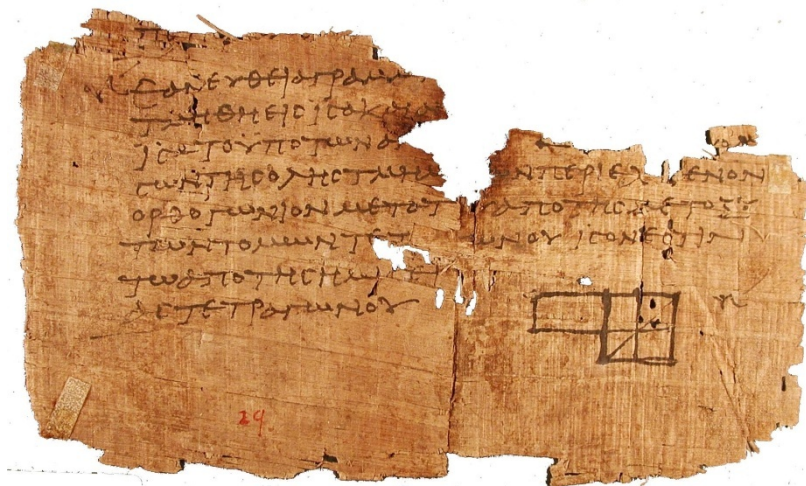 ΕΑΝΕΥΘΕΙΑΓΡΑΜΜ
ΤΜΗΘΗΕΙCΙCΑΚΑΙΑ
ΙCΑΤΟΥΠΟΤΩΝΑ
CΩΝΤΗCΟΛΗCΤΜΗΜ ΩΝΠΕΡΙΕΧ ΜΕΝΟΝ
ΟΡΘΟΓΩΝΙΟΝΜΕΤΑΤ ΑΠΟΤΗCΜΕΤΟΞΥ
ΤΩΝΤΟΜΩΝΤΕΤ ΩΝΟΥΙCΟΝΕCΤΙΝ
ΤΩΑΠΟΤΗCΗΜΙCΕΙ
ΑCΤΕΤΡΑΓΩΝΟΥ
29